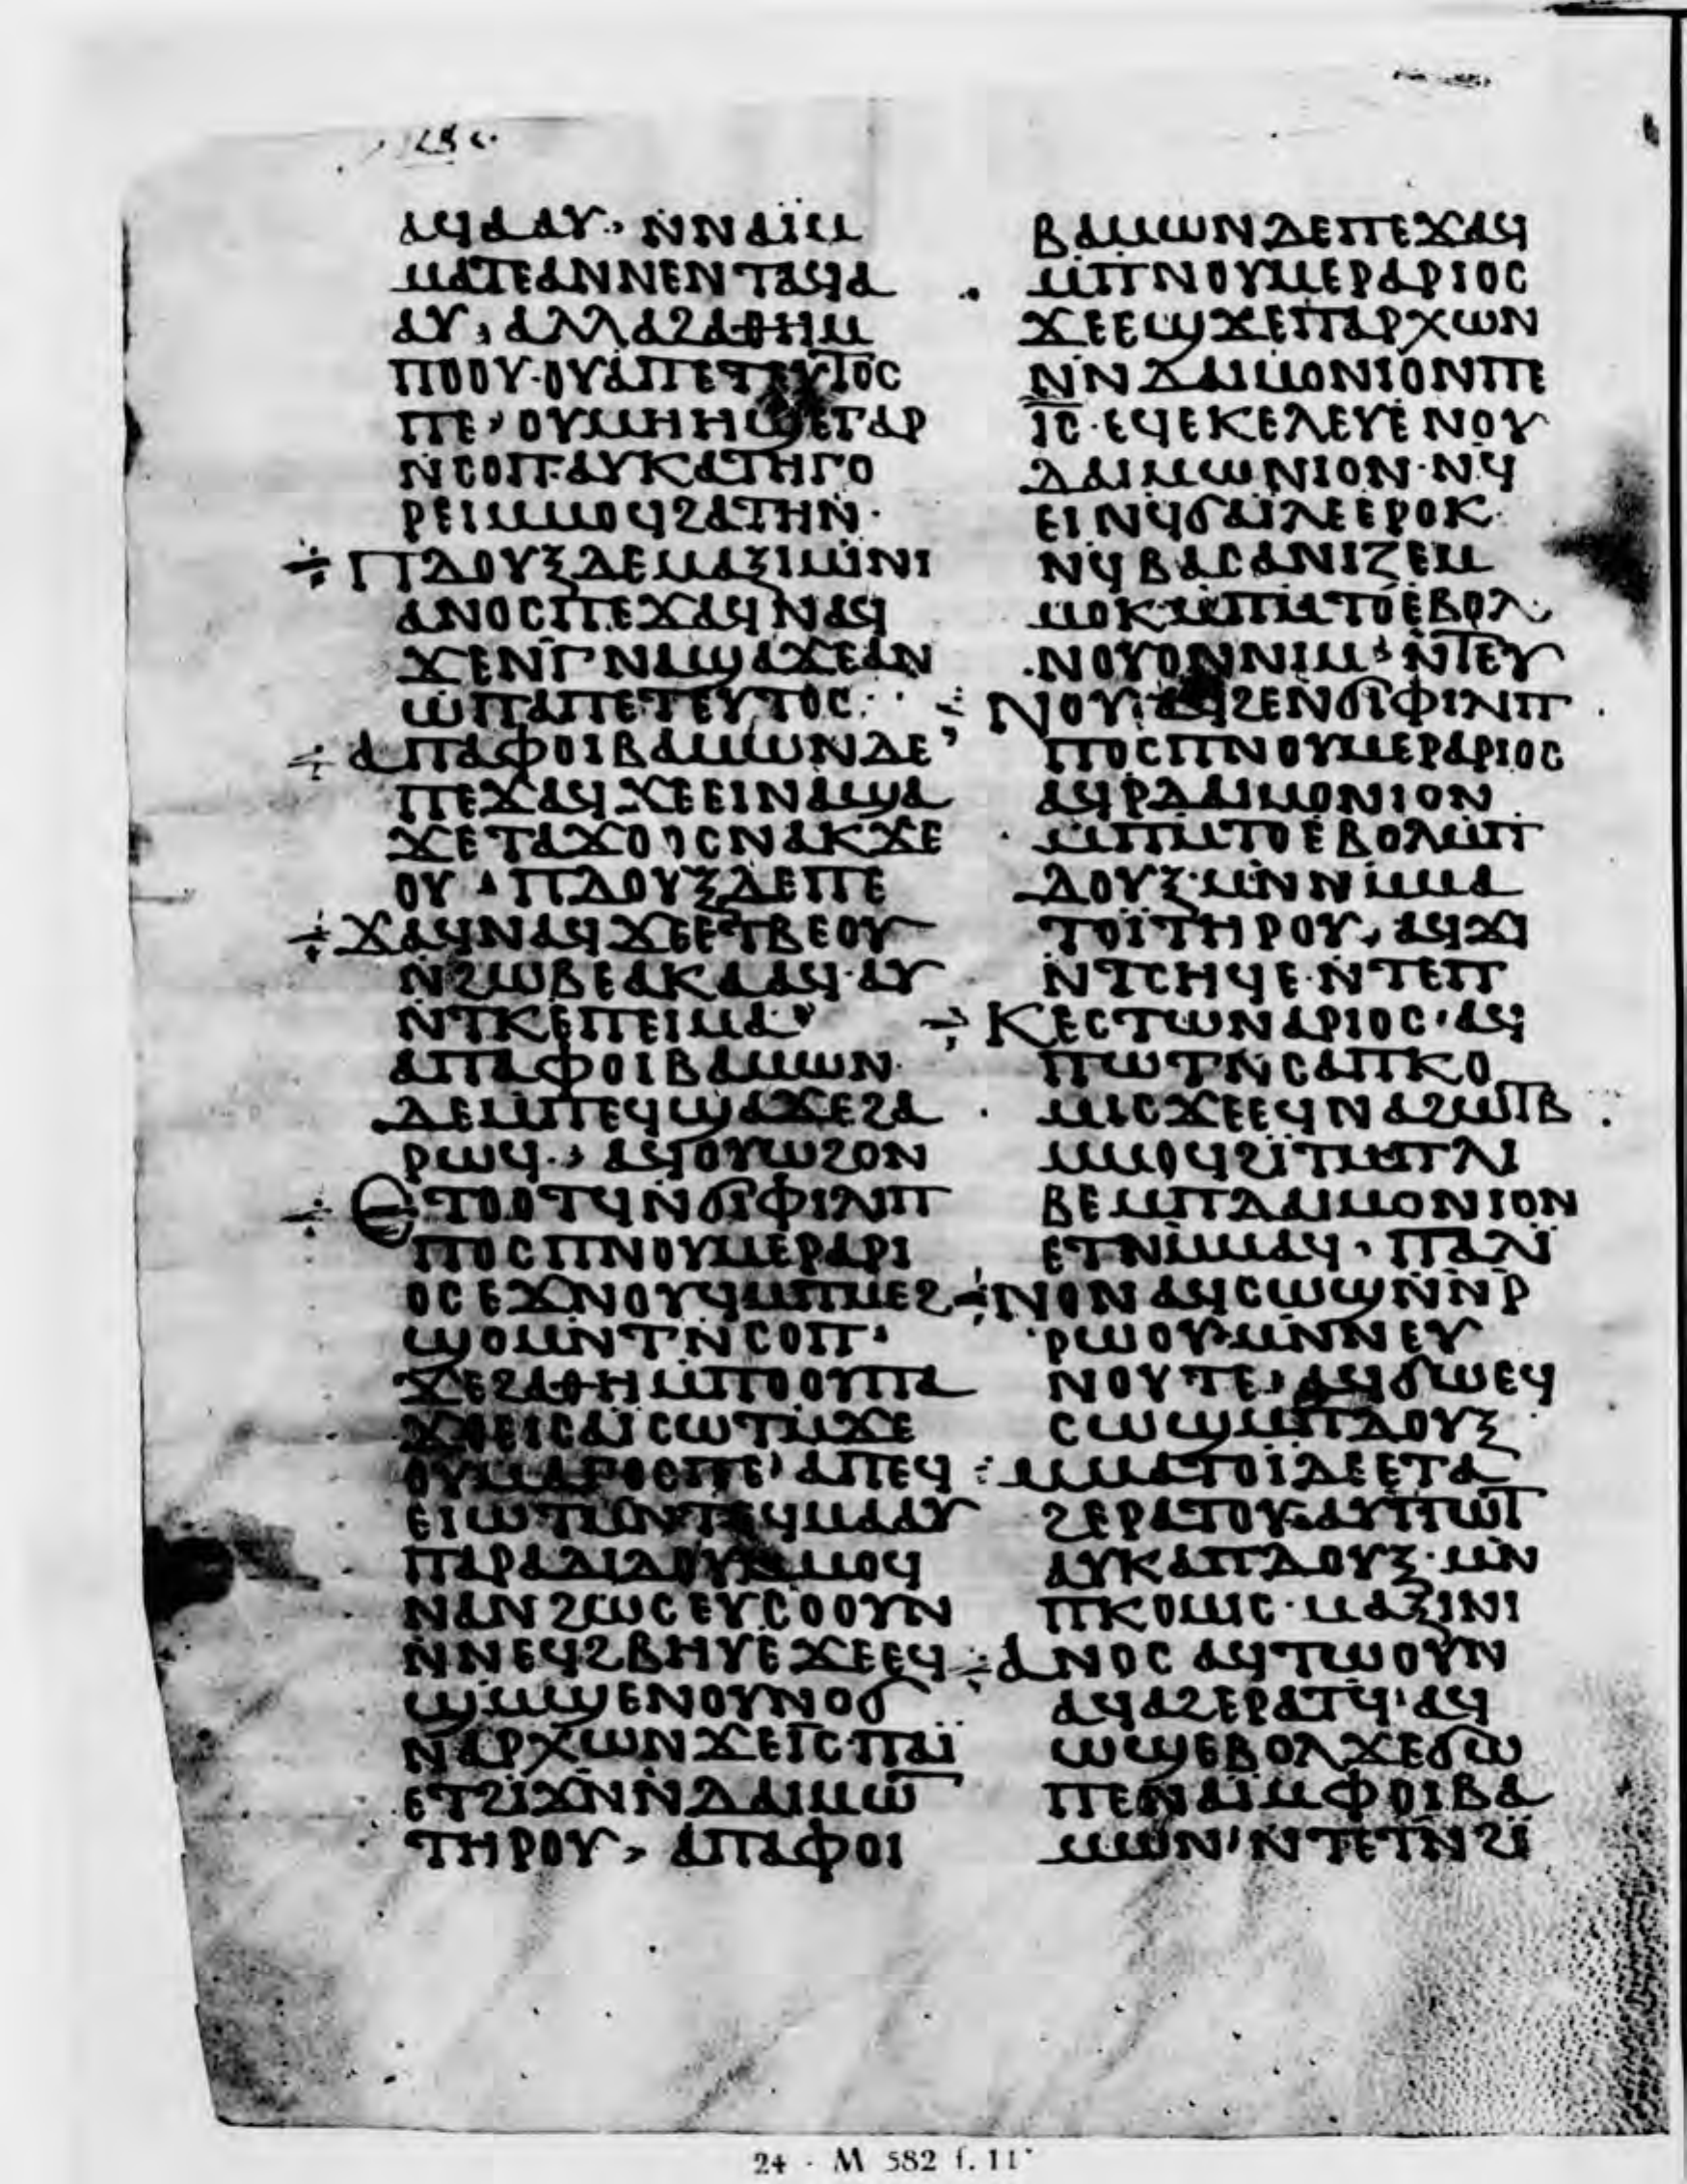 ⲁϥⲁⲁⲩ· ⲛⲛⲁⲓⲙ
ⲙⲁⲧⲉⲁⲛⲛⲉⲛⲧⲁϥⲁ
ⲁⲩ, ⲁⲗⲗⲁϩⲁⲑⲏⲙ
ⲡⲟⲟⲩ·ⲟⲩⲁⲡⲉⲧⲉⲩⲧⲟⲥ
ⲡⲉ, ⲟⲩⲙⲏⲏϣⲉⲅⲁⲣ
ⲛⲥⲟⲡ·ⲁⲩⲕⲁⲧⲏⲅⲟ
ⲣⲉⲓⲙⲙⲟϥϩⲁⲧⲏⲛ·
ⲡⲇⲟⲩⲝⲇⲉⲙⲁⲝⲓⲙⲓⲛⲓ
ⲁⲛⲟⲥⲡⲉϫⲁϥⲛⲁϥ
ϫⲉⲛⲅⲛⲁϣⲁϫⲉⲁⲛ
ⲱⲡⲁⲡⲉⲧⲉⲩⲧⲟⲥ·
ⲁⲡⲁⲫⲟⲓⲃⲁⲙⲱⲛⲇⲉ
ⲡⲉϫⲁϥϫⲉⲉⲓⲛⲁϣⲁ
ϫⲉⲧⲁϫⲟⲟⲥⲛⲁⲕϫⲉ
ⲟⲩ· ⲡⲇⲟⲩⲝⲇⲉⲡⲉ
ϫⲁϥⲛⲁϥϫⲉⲉⲧⲃⲉⲟⲩ
ⲛϩⲱⲃⲉⲁⲕⲁⲁϥ·ⲁⲩ
ⲛⲧⲕⲉⲡⲉⲓⲙⲁ,
ⲁⲡⲁⲫⲟⲓⲃⲁⲙⲱⲛ·
ⲇⲉⲙⲡⲉϥϣⲁϫⲉϩⲁ
ⲣⲱϥ·, ⲁϥⲟⲩⲱϩⲟⲛ
ⲉⲧⲟⲟⲧϥⲛϭⲓⲫⲓⲗⲓⲡ
ⲡⲟⲥⲡⲛⲟⲩⲙⲉⲣⲁⲣⲓ
ⲟⲥⲉϫⲛⲟⲩϥⲙⲡⲙⲉϩ
ϣⲟⲙⲛⲧⲛⲥⲟⲡ·
ϫⲉϩⲁⲑⲏⲙⲡⲟⲟⲩⲡⲁ
ϫⲟⲉⲓⲥⲁⲓⲥⲱⲧⲙϫⲉ
ⲟⲩⲙⲁⲅⲟⲥⲡⲉ, ⲁⲡⲉϥ
ⲉⲓⲱⲧⲙⲛⲧⲉϥⲙⲁⲁⲩ
ⲡⲁⲣⲁⲇⲓⲇⲟⲩⲙⲙⲟϥ
ⲛⲁⲛϩⲱⲥⲉⲩⲥⲟⲟⲩⲛ
ⲛⲛⲉϥϩⲃⲏⲩⲉϫⲉⲉϥ
ϣⲙϣⲉⲛⲟⲩⲛⲟϭ
ⲛⲁⲣⲭⲱⲛϫⲉⲓⲥ·ⲡⲁⲓ
ⲉⲧϩⲓϫⲛⲛⲇⲁⲓⲙⲱ
ⲧⲏⲣⲟⲩ, ⲁⲡⲁⲫⲟⲓ
ⲃⲁⲙⲱⲛⲇⲉⲡⲉϫⲁϥ
ⲙⲡⲛⲟⲩⲙⲉⲣⲁⲣⲓⲟⲥ
ϫⲉⲉϣϫⲉⲡⲁⲣⲭⲱⲛ
ⲛⲛⲇⲁⲓⲙⲟⲛⲓⲟⲛⲡⲉ
ⲓⲥ·ⲉϥⲉⲕⲉⲗⲉⲩⲉⲛⲟⲩ
ⲇⲁⲓⲙⲱⲛⲓⲟⲛ·ⲛϥ
ⲉⲓⲛϥϭⲁⲓⲗⲉⲉⲣⲟⲕ·
ⲛϥⲃⲁⲥⲁⲛⲓⲍⲉⲙ
ⲙⲟⲕⲙⲡⲙⲧⲟⲉⲃⲟⲗ
ⲛⲟⲩⲟⲛⲛⲓⲙ· ⲛⲧⲉⲩ
ⲛⲟⲩ ϩⲉⲛϭⲓⲫⲓⲗⲓⲡ
ⲡⲟⲥⲡⲛⲟⲩⲙⲉⲣⲁⲣⲓⲟⲥ
ⲁϥⲣⲇⲁⲓⲙⲟⲛⲓⲟⲛ
ⲙⲡⲙⲧⲟⲉⲃⲟⲗⲙⲡ
ⲇⲟⲩⲝ·ⲙⲛⲛⲙⲙⲁ
ⲧⲟⲓⲧⲏⲣⲟⲩ, ⲁϥϫⲓ
ⲛⲧⲥⲏϥⲉ·ⲛⲧⲉⲡ
ⲕⲉⲥⲧⲱⲛⲁⲣⲓⲟⲥ·ⲁϥ
ⲡⲱⲧⲛⲥⲁⲡⲕⲟ
ⲙⲓⲥϫⲉⲉϥⲛⲁϩⲱⲧⲃ
ⲙⲙⲟϥϩⲓⲧⲙⲡⲗⲓ
ⲃⲉⲙⲡⲇⲁⲓⲙⲟⲛⲓⲟⲛ
ⲉⲧⲛⲙⲙⲁϥ· ⲡⲁⲗⲓ
ⲛⲟⲛⲁϥⲥⲱϣⲛⲛⲣ
ⲣⲱⲟⲩ·ⲙⲛⲛⲉⲩ
ⲛⲟⲩⲧⲉ, ⲁϥϭⲱⲉϥ
ⲥⲱϣⲙⲡⲇⲟⲩⲝ
ⲙⲙⲁⲧⲟⲓⲇⲉⲉⲧⲁ
ϩⲉⲣⲁⲧⲟⲩ·ⲁⲩⲡⲱⲧ
ⲁⲩⲕⲁⲡⲇⲟⲩⲝ·ⲙⲛ
ⲡⲕⲟⲙⲓⲥ·ⲙⲁⲝⲓⲛⲓ
ⲁⲛⲟⲥⲁϥⲧⲱⲟⲩⲛ
ⲁϥⲁϩⲉⲣⲁⲧϥ·ⲁϥ
ⲱϣⲉⲃⲟⲗϫⲉϭⲱ
ⲡⲉⲛⲁⲓⲙⲫⲟⲓⲃⲁ
ⲙⲱⲛ·ⲛⲧⲉⲧⲛϩⲓ
24 · M 582 f. 11